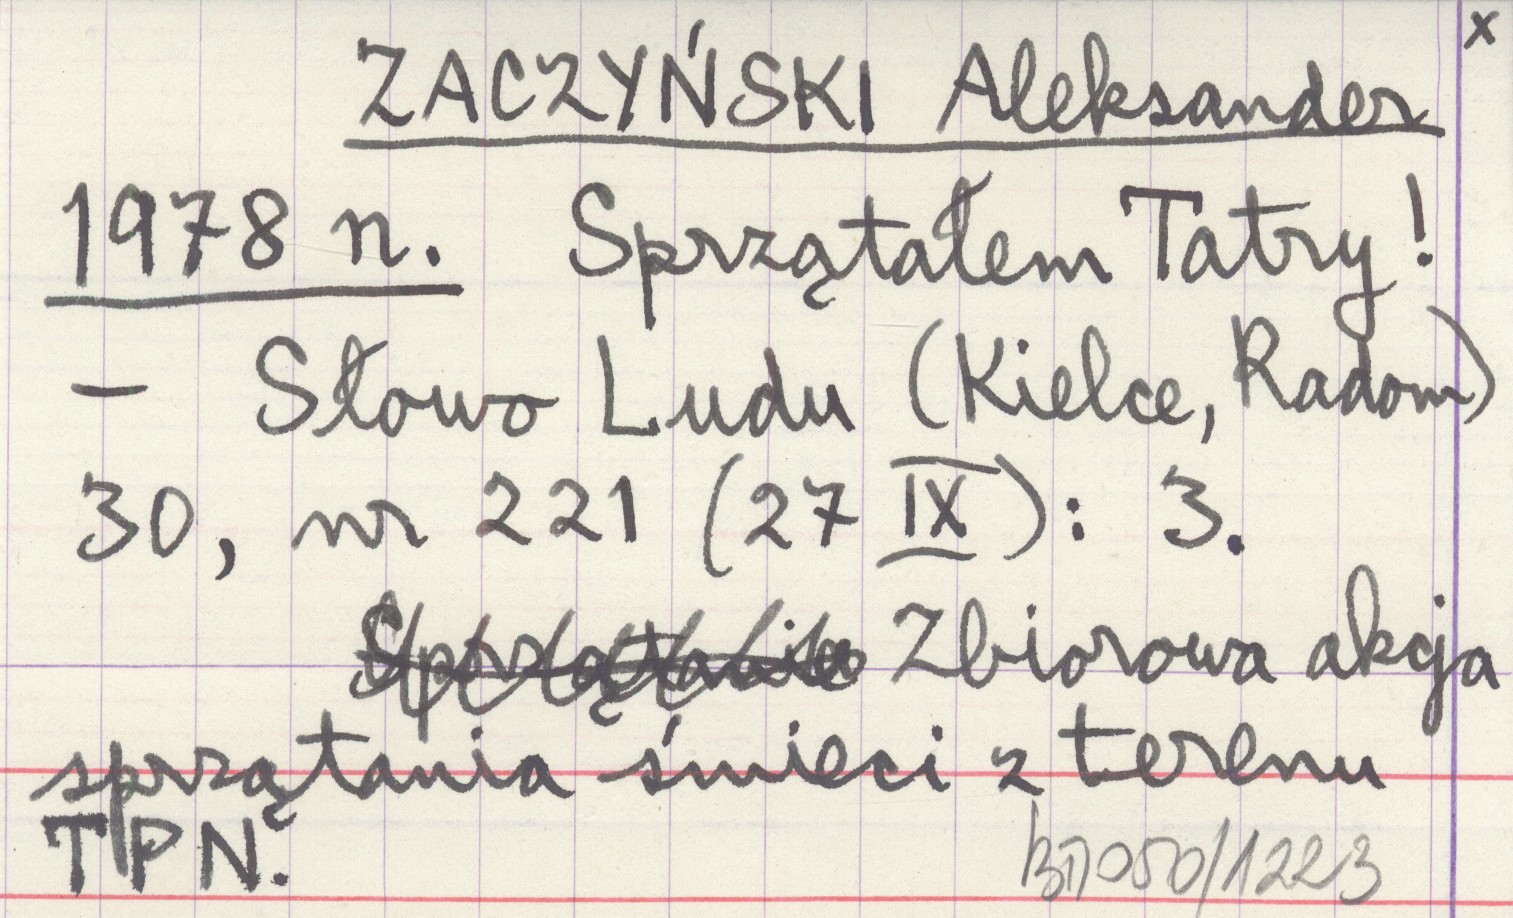 x
ZACZYŃSKI Aleksander
1978 n. Sprzątałem Tatry!
– Słowo Ludu (Kielce, Radom)
30, nr 221 (27 IX): 3.
Zbiorowa akcja
sprzątania śmieci z terenu
TPN.
050/1223